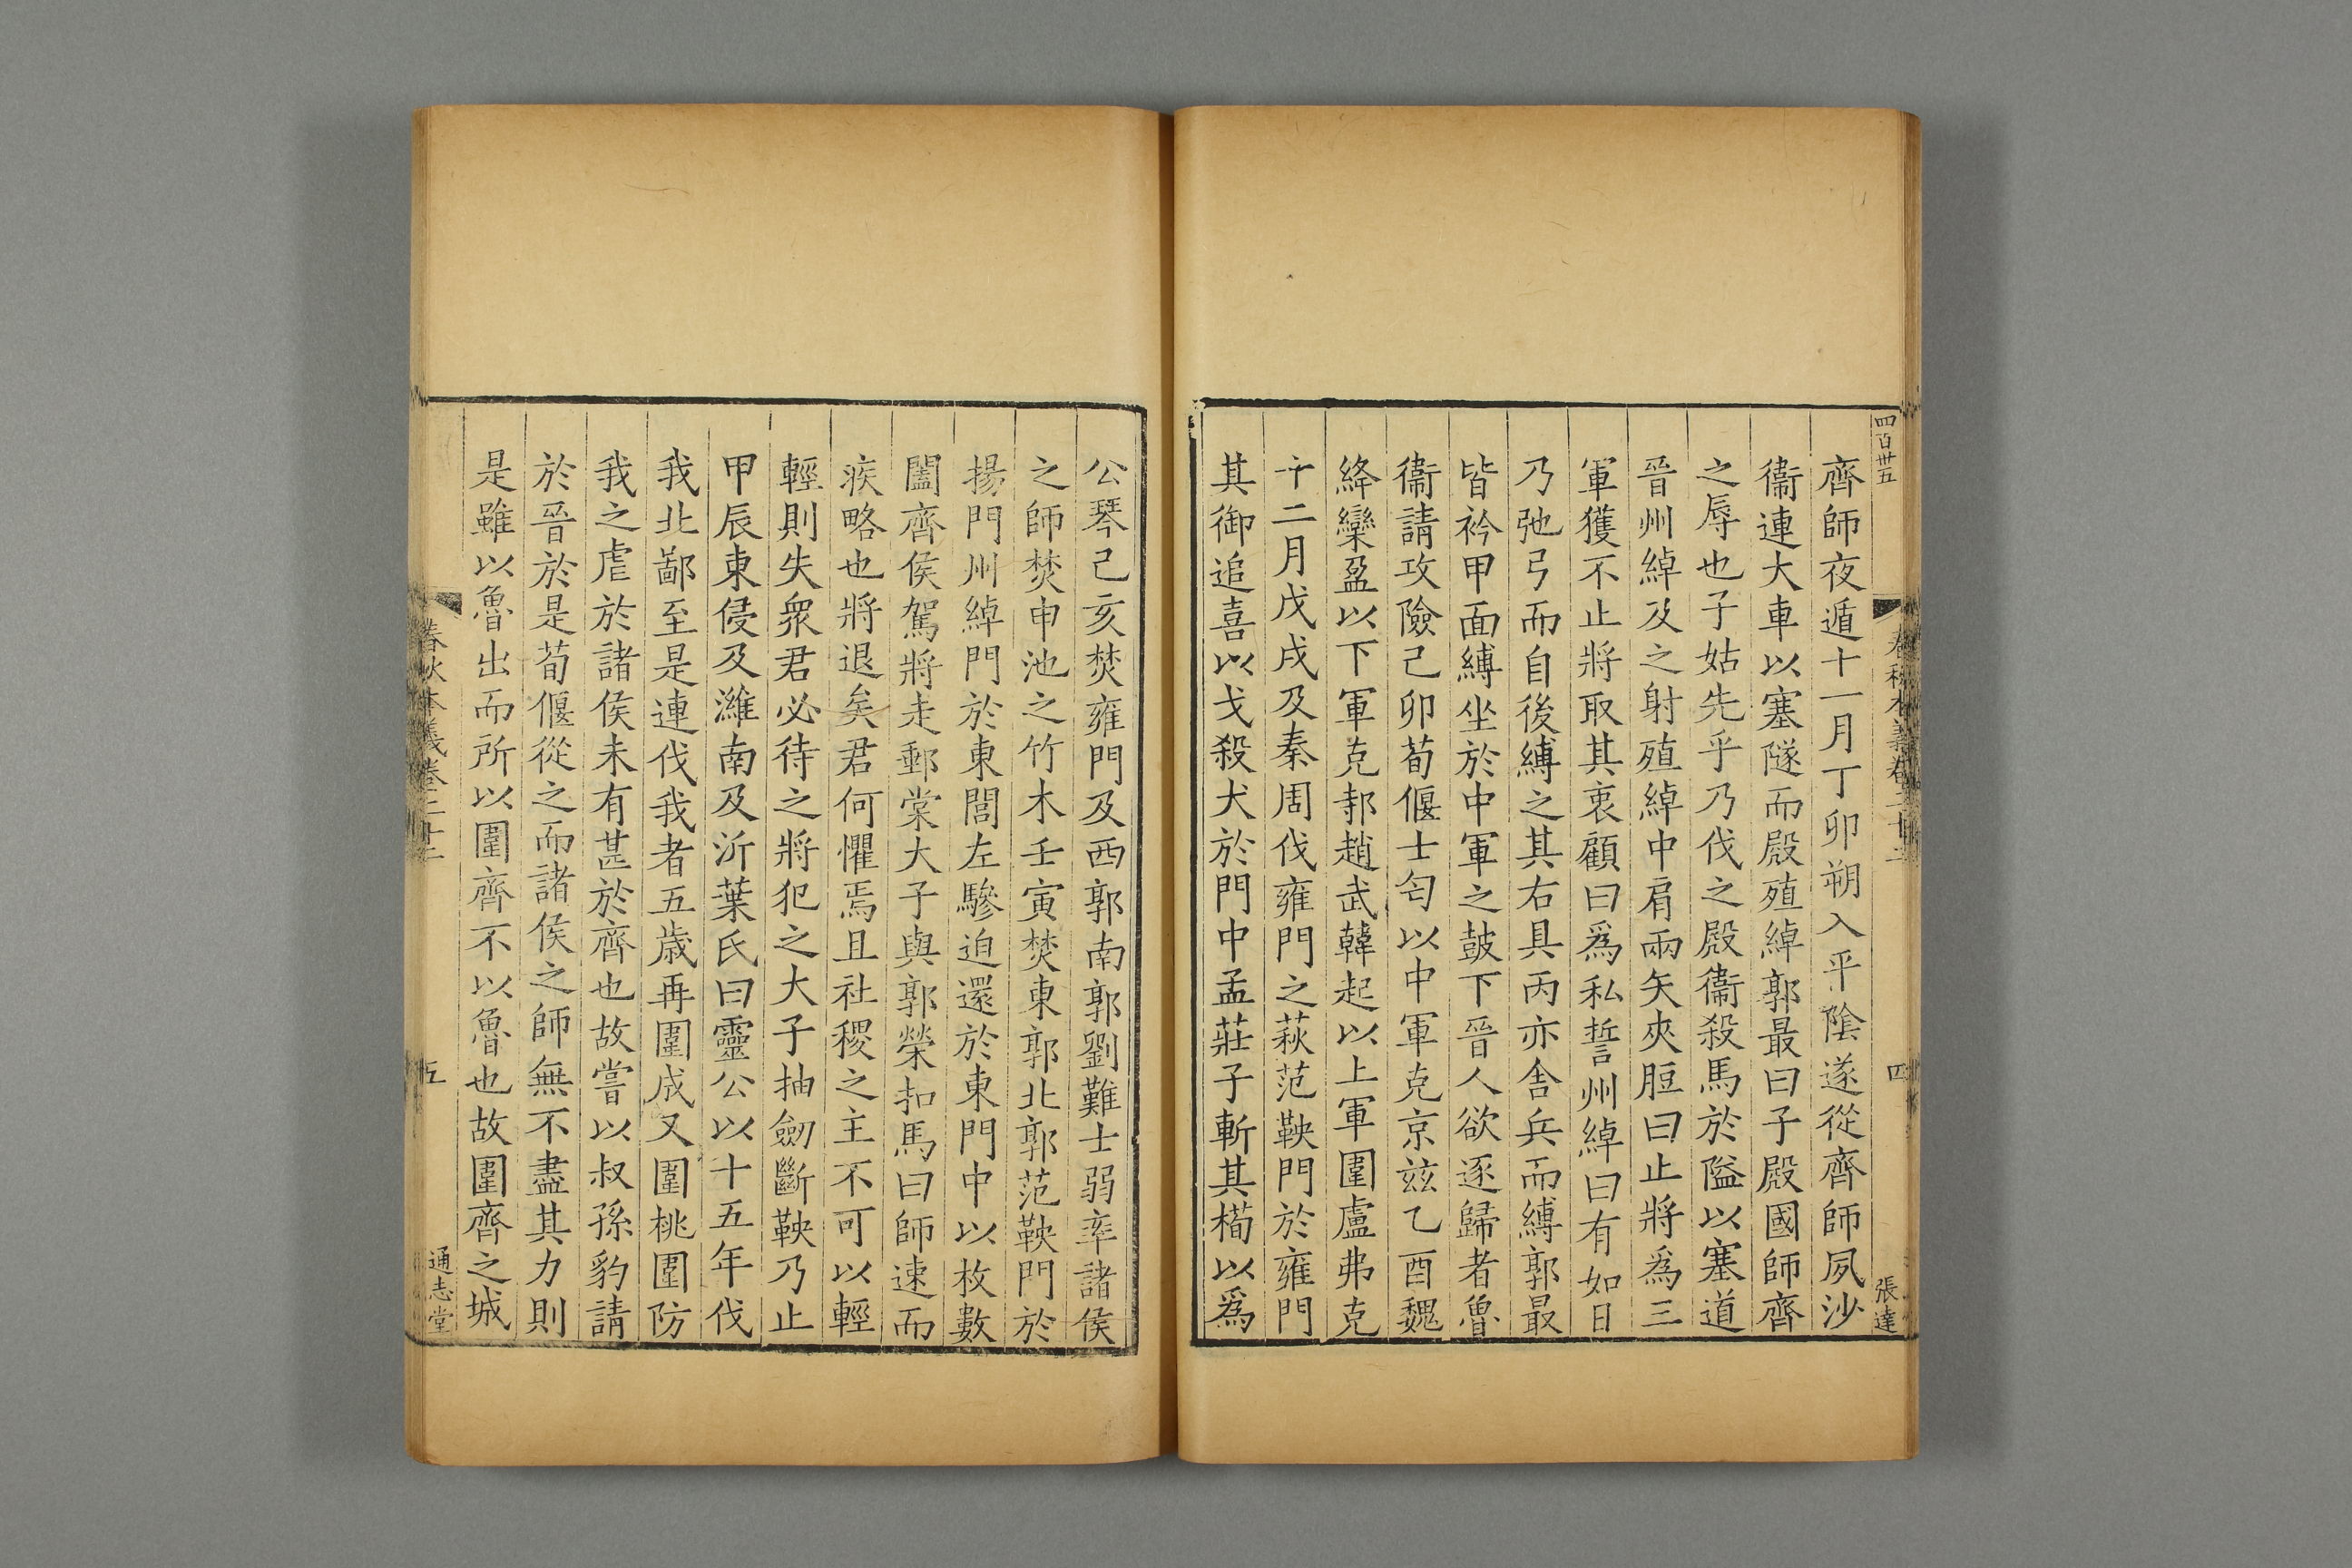 四百卅五
春秋本義卷二十二
四
張達
齊師夜遁十一月丁卯朔入平陰遂從齊師夙沙
衞連大車以塞隧而殿殖綽郭最曰子殿國師齊
之辱也子姑先乎乃伐之殿衞殺馬於隘以塞道
晉州綽及之射殖綽中肩兩矢夾脰曰止將爲三
軍獲不止將取其衷顧曰爲私誓州綽曰有如日
乃弛弓而自後縛之其右具丙亦舍兵而縛郭最
皆衿甲面縛坐於中軍之鼓下晉人欲逐歸者魯
衞請攻險己卯荀偃士匄以中軍克京兹乙酉魏
絳欒盈以下軍克邿趙武韓起以上軍圍盧弗克
十二月戊戌及秦周伐雍門之萩范鞅門於雍門
其御追喜以戈殺犬於門中孟莊子斬其橁以爲
公琴己亥焚雍門及西郭南郭劉難士弱率諸侯
之師焚申池之竹木壬寅焚東郭北郭范鞅門於
揚門州綽門於東閭左驂迫還於東門中以枚數
闔齊侯駕將走郵棠大子與郭榮扣馬曰師速而
疾略也將退矣君何懼焉且社稷之主不可以輕
輕則失衆君必待之將犯之大子抽劒斷鞅乃止
甲辰東侵及濰南及沂葉氏曰靈公以十五年伐
我北鄙至是連伐我者五歲再圍成又圍桃圍防
我之虐於諸侯未有甚於齊也故嘗以叔孫豹請
於晉於是荀偃從之而諸侯之師無不盡其力則
是雖以魯出而所以圍齊不以魯也故圍齊之城
春秋本義卷二十二
五
通志堂